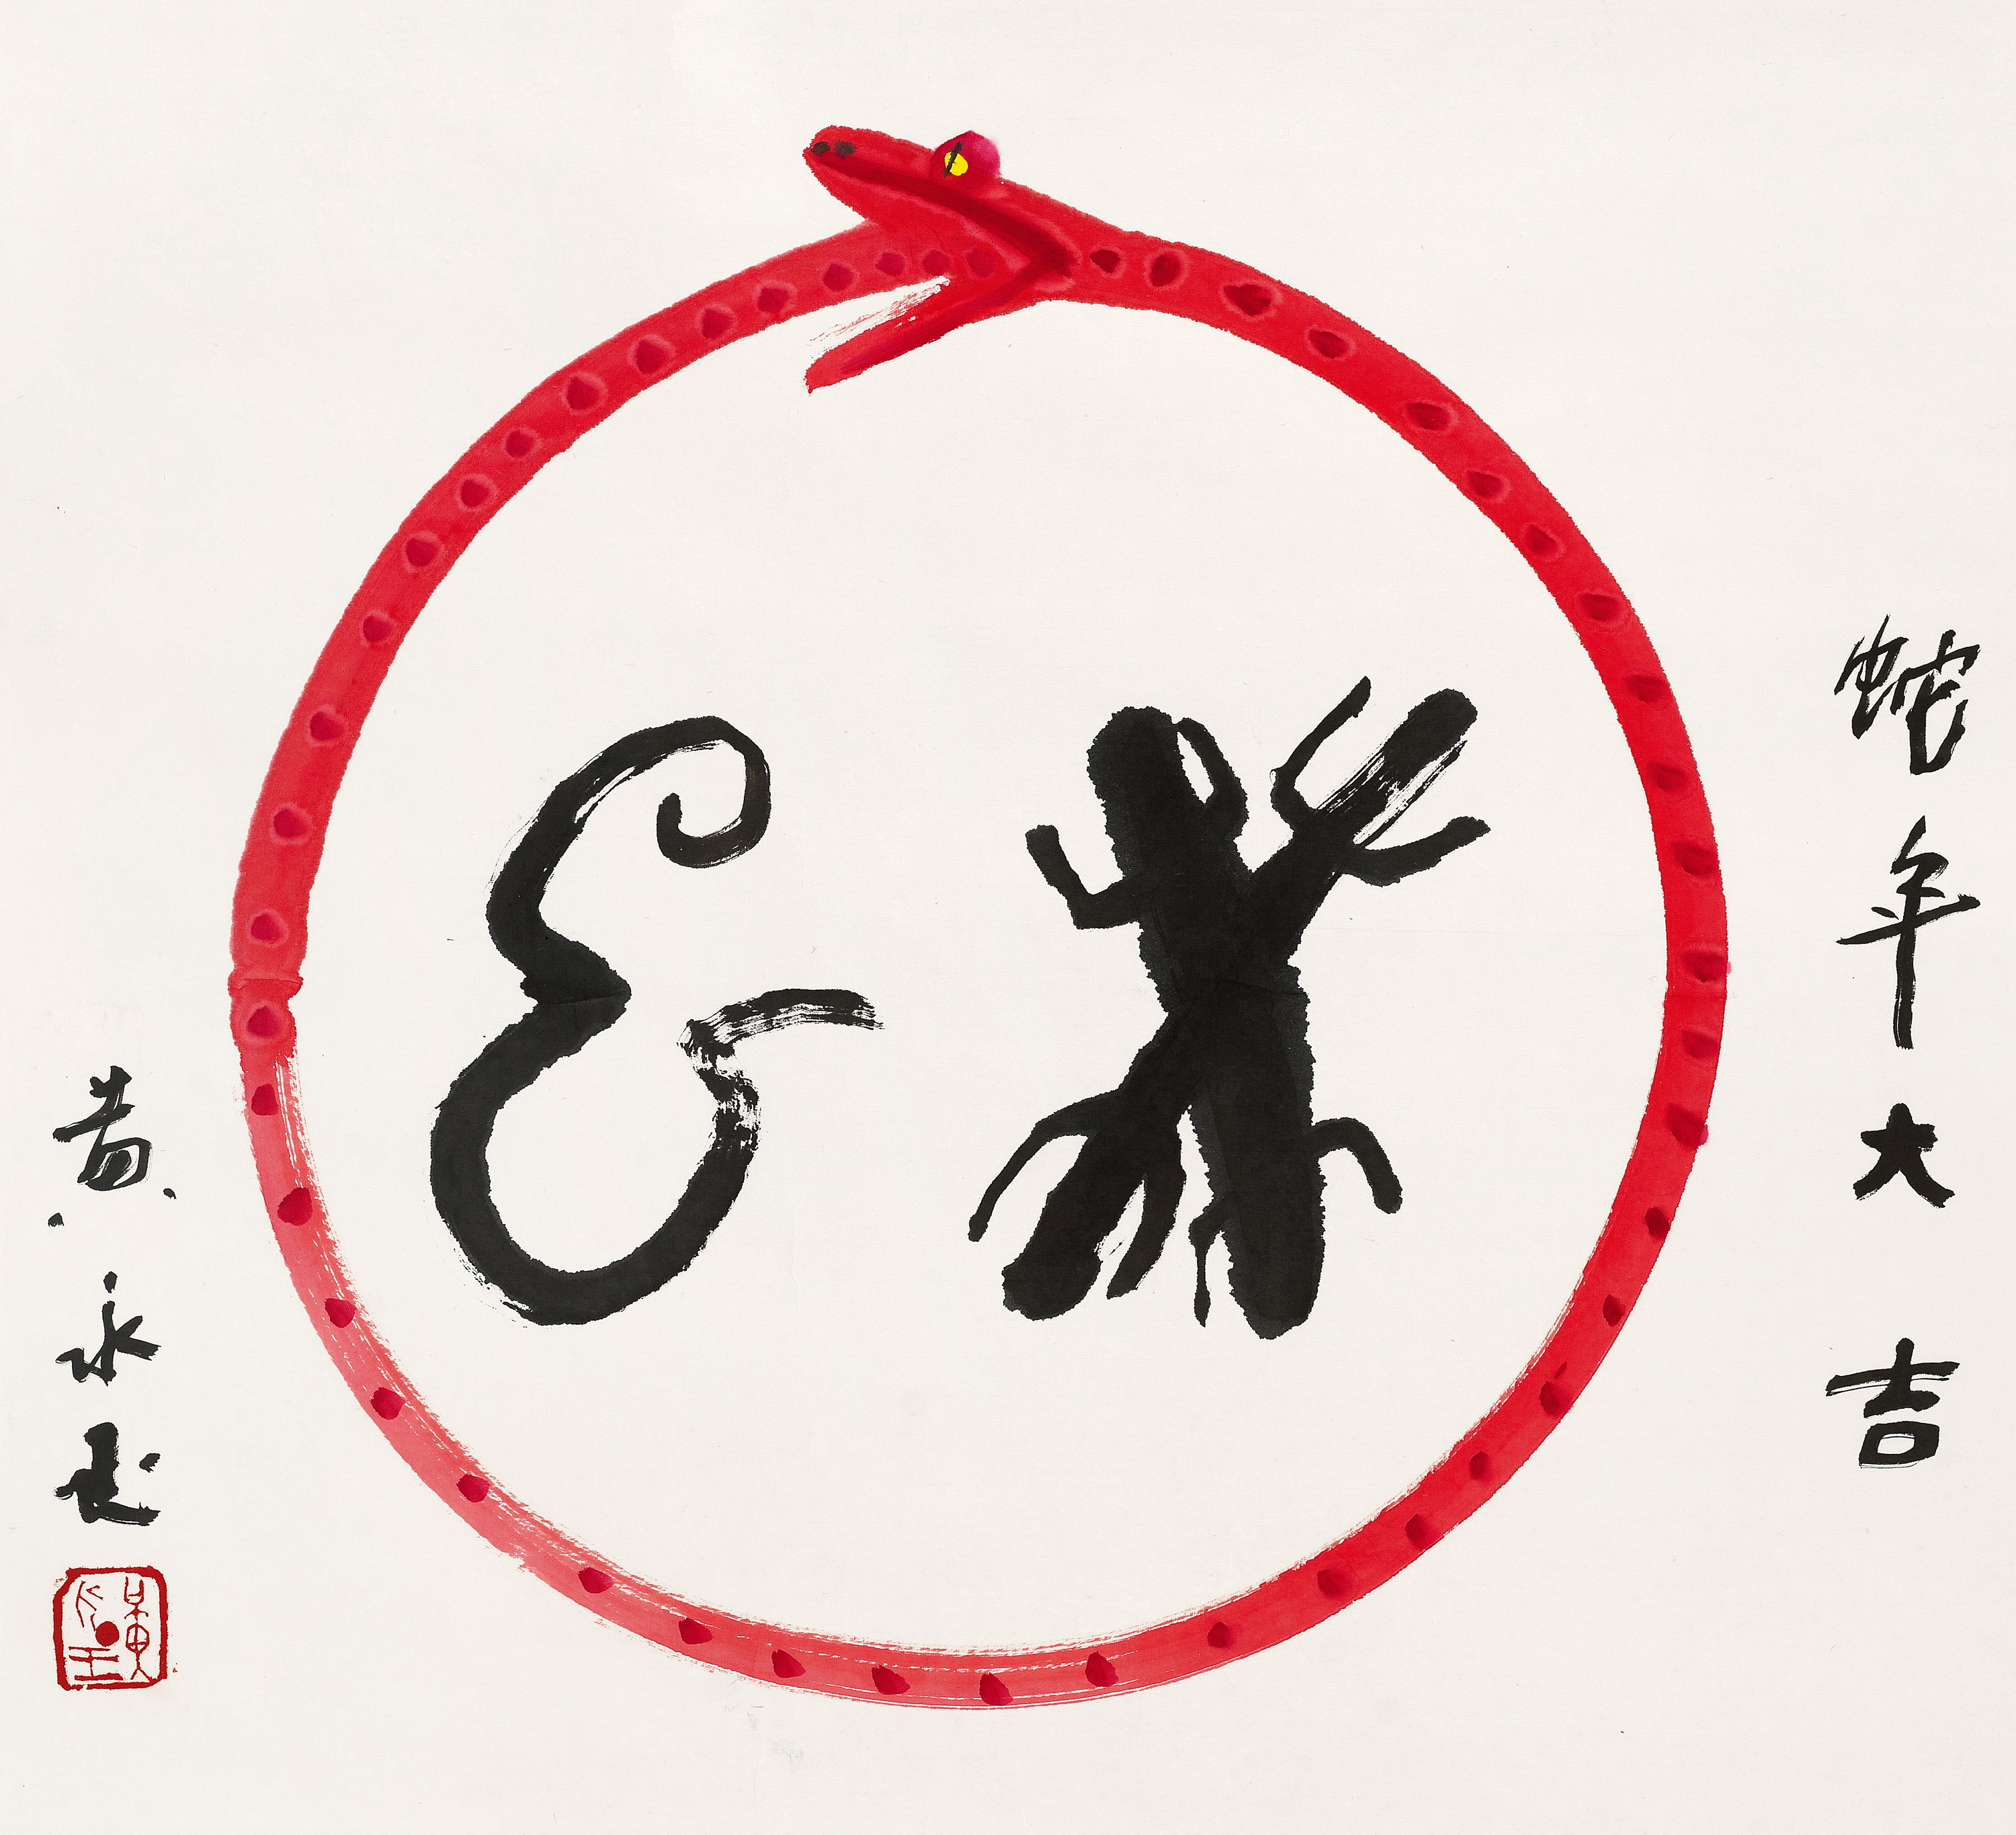 蛇年大吉
癸巳
黄永玉
黄永玉